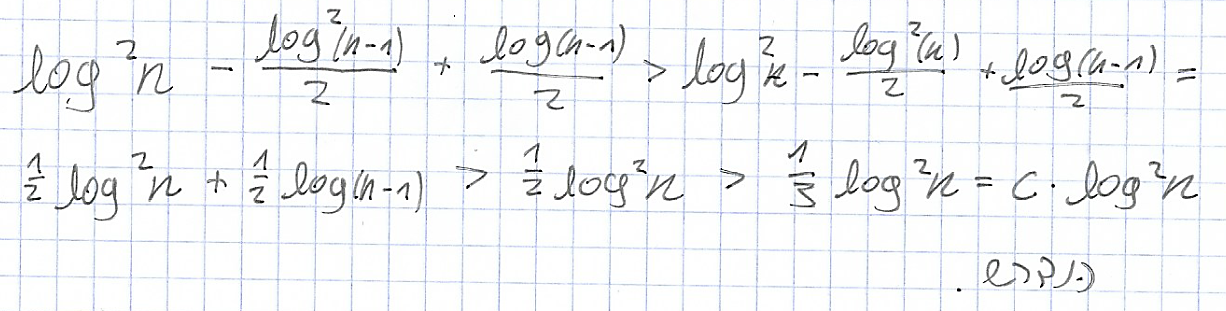 log²n - log²(n-1)/2 + log(n-1)/2 > log²n - log²(n)/2 + log(n-1)/2 =
1/2 log²n + 1/2 log(n-1) > 1/2 log²n > 1/3 log²n = c · log²n
כנדרש.